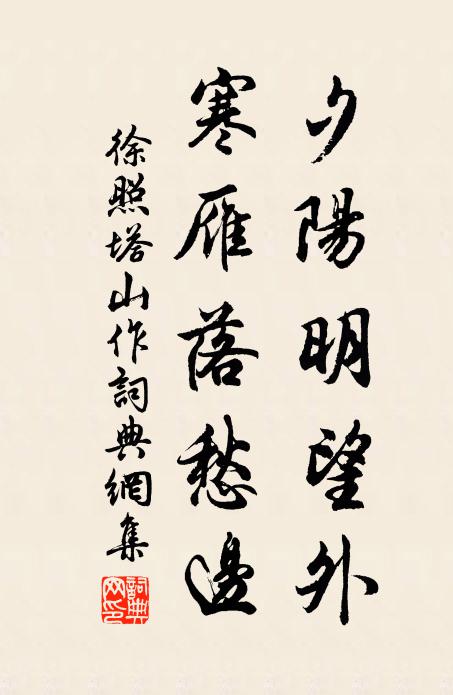 夕陽明望外
寒雁落愁邊
徐照塔山作詞典網集
詞典網印